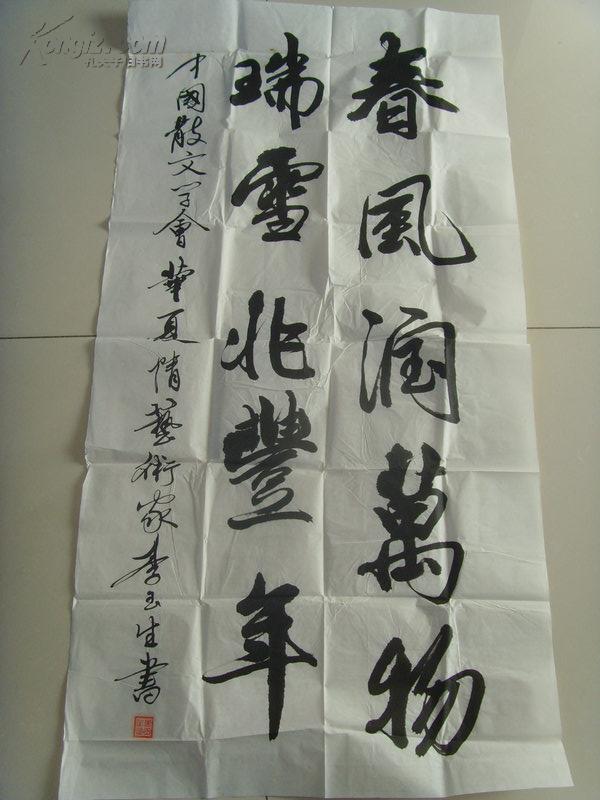 春風润萬物
瑞雪兆豐年
中國散文学會華夏情藝術家李玉生書
Kongfz.com
孔夫子旧书网